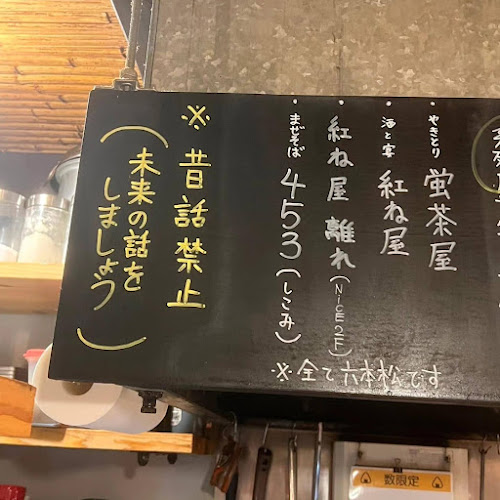 ・やきとり 蛍茶屋
・酒と宴 紅ね屋
・紅ね屋 離れ(NiCE2F)
・まぜそば 453(しこみ)
※全て六本松です
※昔話禁止
(未来の話を
しましょう)
数限定